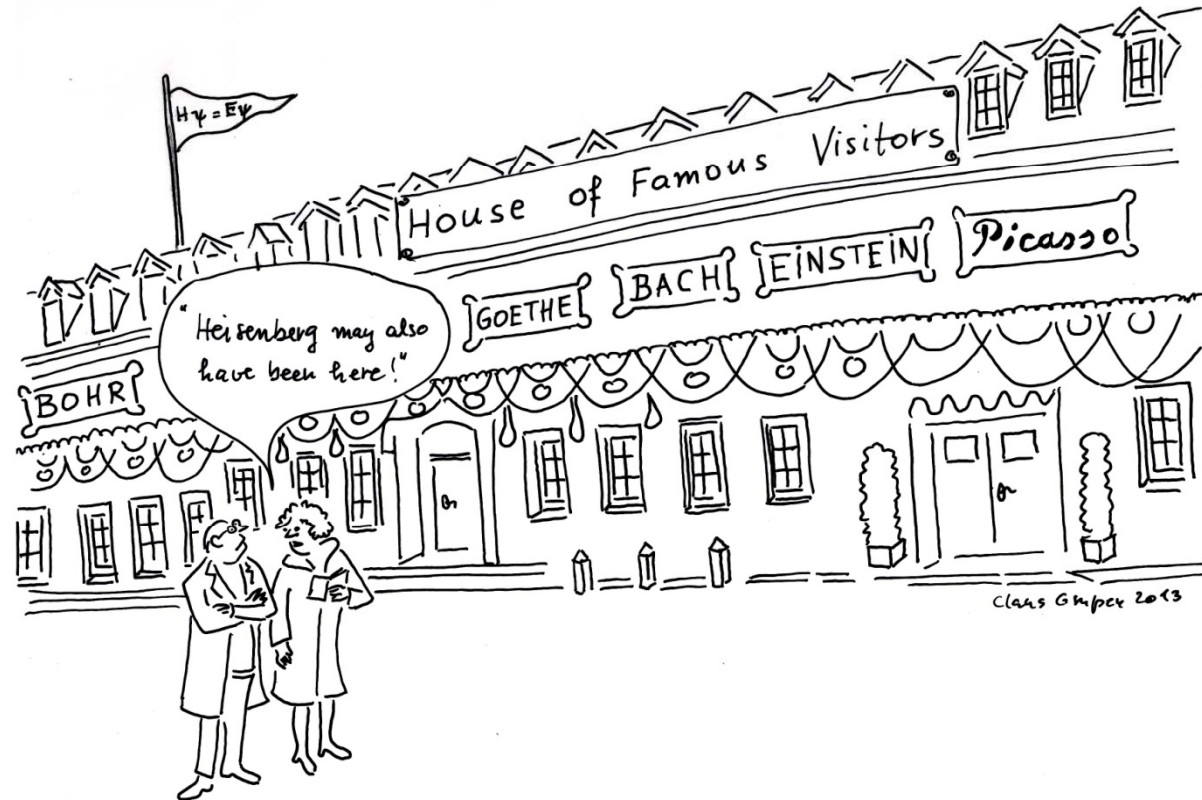 Hψ = Eψ
House of Famous Visitors
BOHR
GOETHE
BACH
EiNSTEiN
Picasso
"Heisenberg may also
have been here!"
Claus Grupen 2013